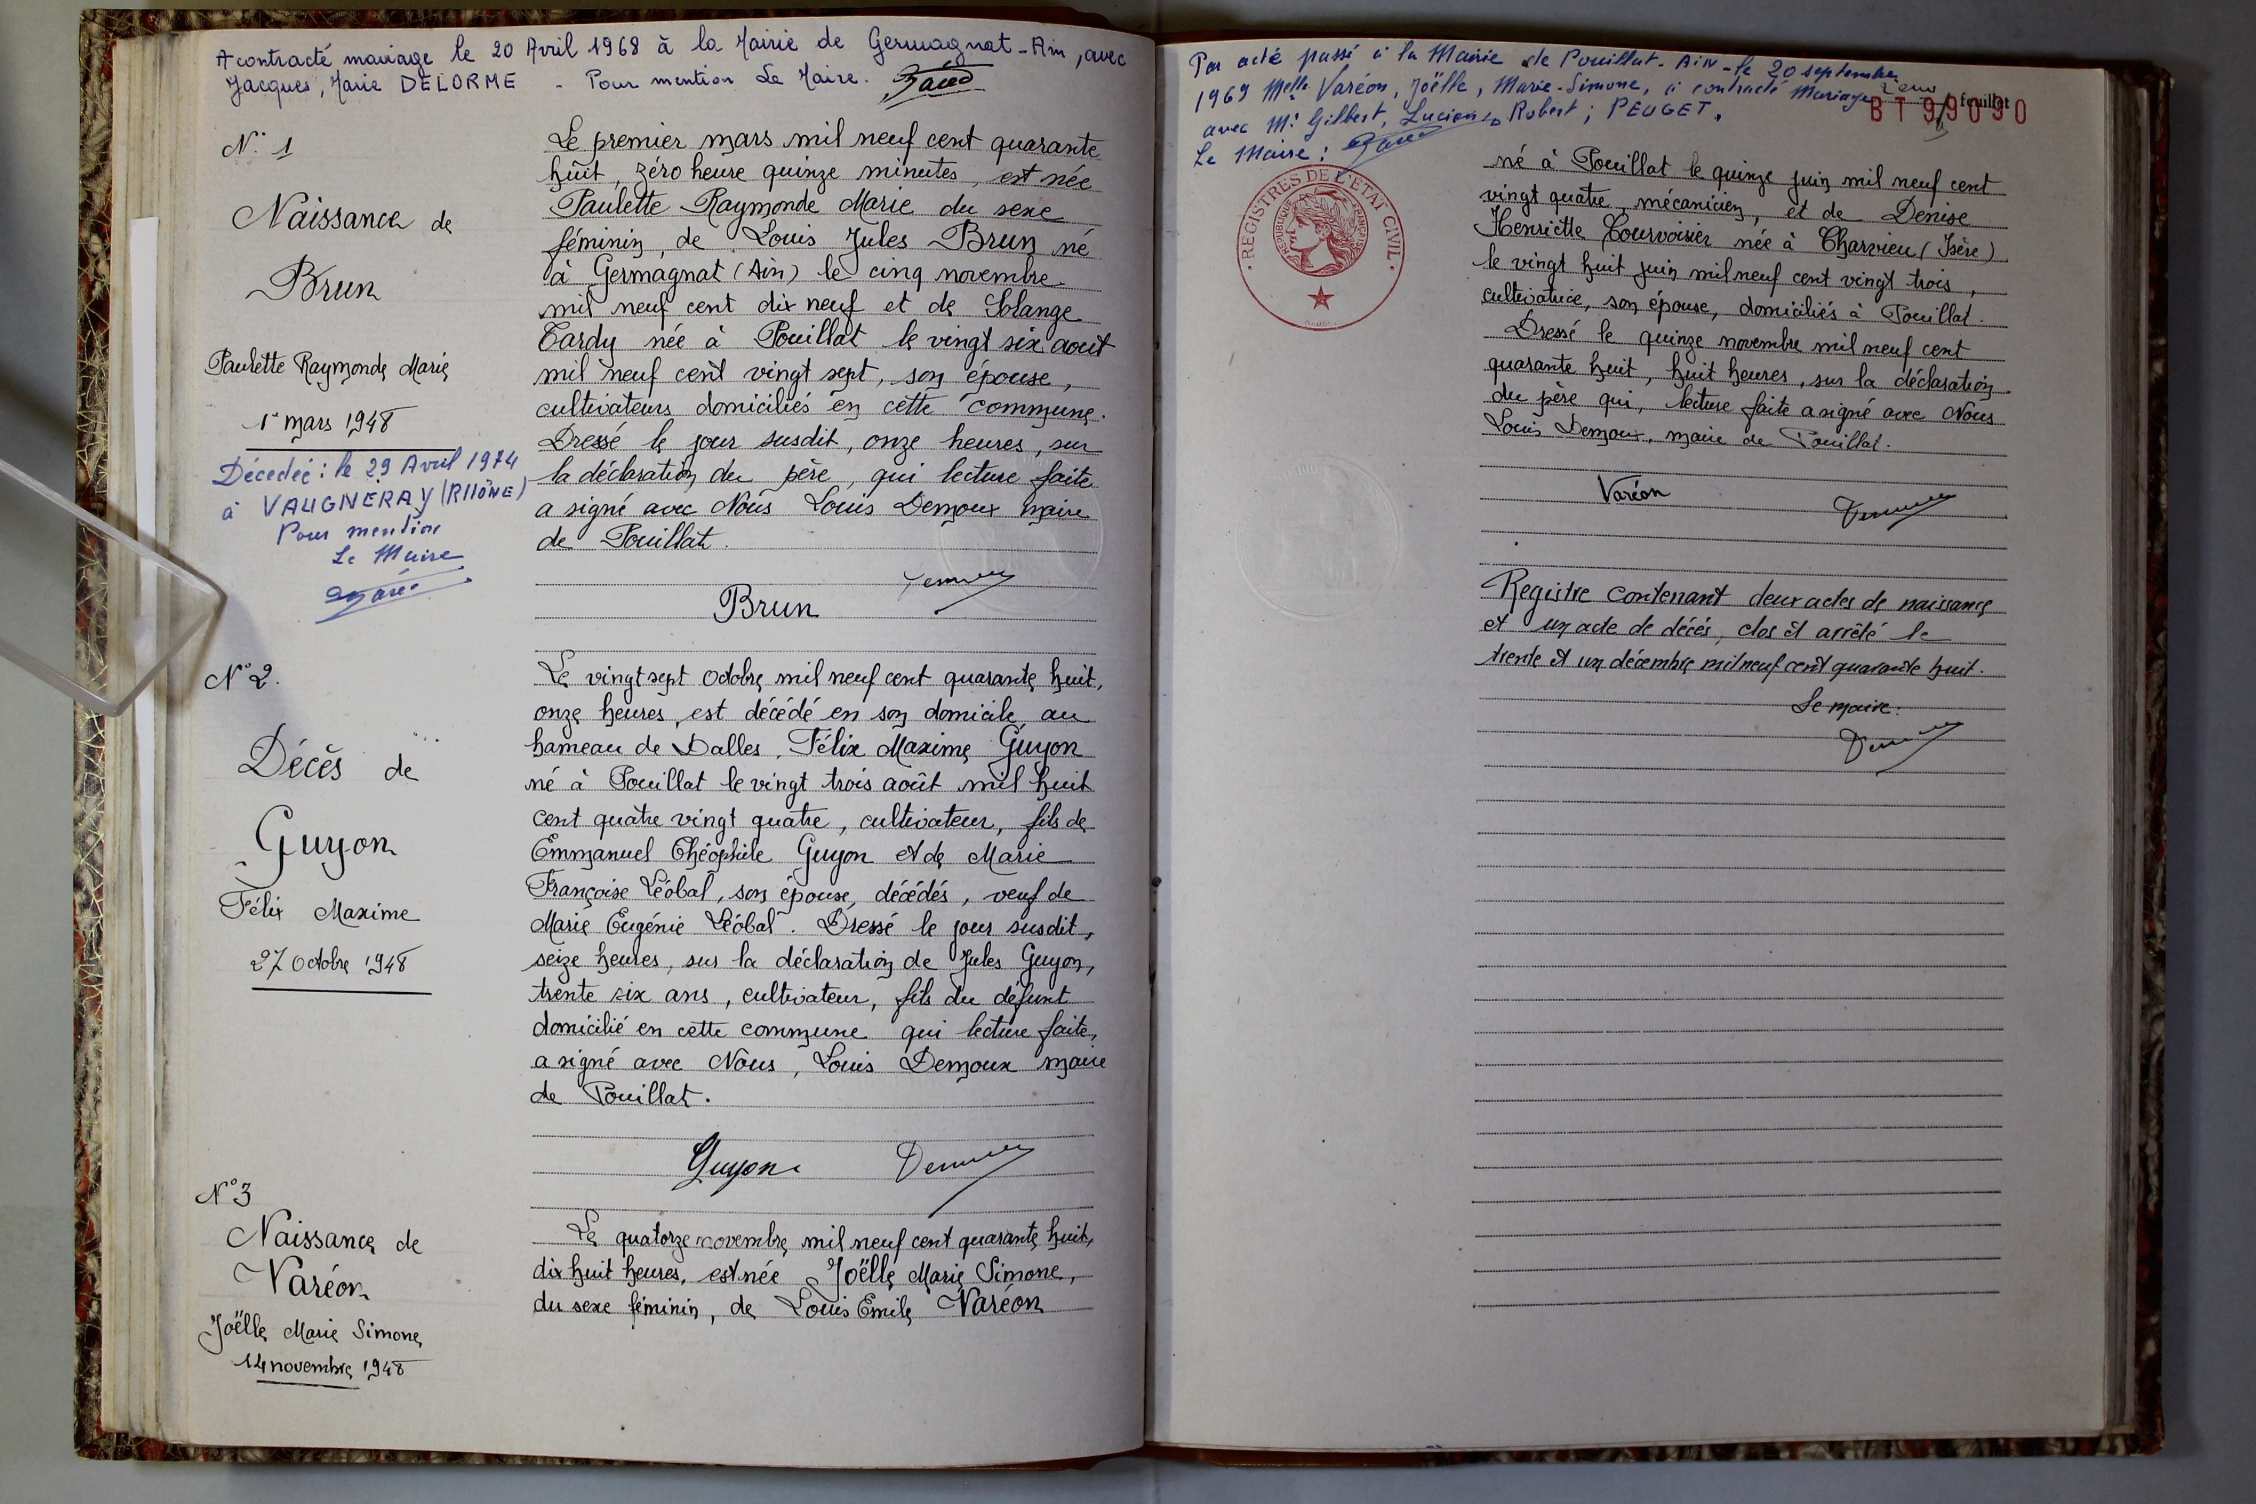 A contracté mariage le 20 Avril 1968 à la Mairie de Germagnat - Ain, avec
Jacques, Marie DELORME - Pour mention Le Maire.
N° 1
Naissance de
Brun
Paulette Raymonde Marie
1er mars 1948
Décédée : le 29 Avril 1974
à VAUGNERAY (RHÔNE)
Pour mention
Le Maire
Le premier mars mil neuf cent quarante
huit, zéro heure quinze minutes, est née
Paulette Raymonde Marie du sexe
féminin, de Louis Jules Brun né
à Germagnat (Ain) le cinq novembre
mil neuf cent dix neuf et de Solange
Tardy née à Pouillat le vingt six août
mil neuf cent vingt sept, son épouse,
cultivateurs domiciliés en cette commune.
Dressé le jour susdit, onze heures, sur
la déclaration du père, qui lecture faite
a signé avec Nous Louis Demoux maire
de Pouillat.
Brun
N° 2.
Décès de
Guyon
Félix Maxime
27 Octobre 1948
Le vingt sept Octobre mil neuf cent quarante huit,
onze heures, est décédé en son domicile au
hameau de Dalles, Félix Maxime Guyon
né à Pouillat le vingt trois août mil huit
cent quatre vingt quatre, cultivateur, fils de
Emmanuel Théophile Guyon et de Marie
Françoise Léobal, son épouse, décédés, veuf de
Marie Eugénie Léobal. Dressé le jour susdit,
seize heures, sur la déclaration de Jules Guyon,
trente six ans, cultivateur, fils du défunt
domicilié en cette commune qui lecture faite,
a signé avec Nous, Louis Demoux maire
de Pouillat.
Guyon
N° 3
Naissance de
Varéon
Joëlle Marie Simone
14 novembre 1948
Le quatorze novembre mil neuf cent quarante huit,
dix huit heures, est née Joëlle Marie Simone,
du sexe féminin, de Louis Emile Varéon
Par acte passé à la Mairie de Pouillat - Ain - le 20 septembre
1969 Melle Varéon, Joëlle, Marie-Simone, a contracté Mariage
avec Mr Gilbert, Lucien, Robert ; PEUGET.
Le Maire :
feuillet
BT 99090
REGISTRES DE L'ETAT CIVIL
REPUBLIQUE FRANÇAISE
né à Pouillat le quinze juin mil neuf cent
vingt quatre, mécanicien, et de Denise
Henriette Tourvoisier née à Charvieu (Isère)
le vingt huit juin mil neuf cent vingt trois,
cultivatrice, son épouse, domiciliés à Pouillat.
Dressé le quinze novembre mil neuf cent
quarante huit, huit heures, sur la déclaration
du père qui, lecture faite a signé avec Nous
Louis Demoux, maire de Pouillat.
Varéon
Registre contenant deux actes de naissance
et un acte de décés, clos et arrêté le
trente et un décembre mil neuf cent quarante huit.
Le maire :